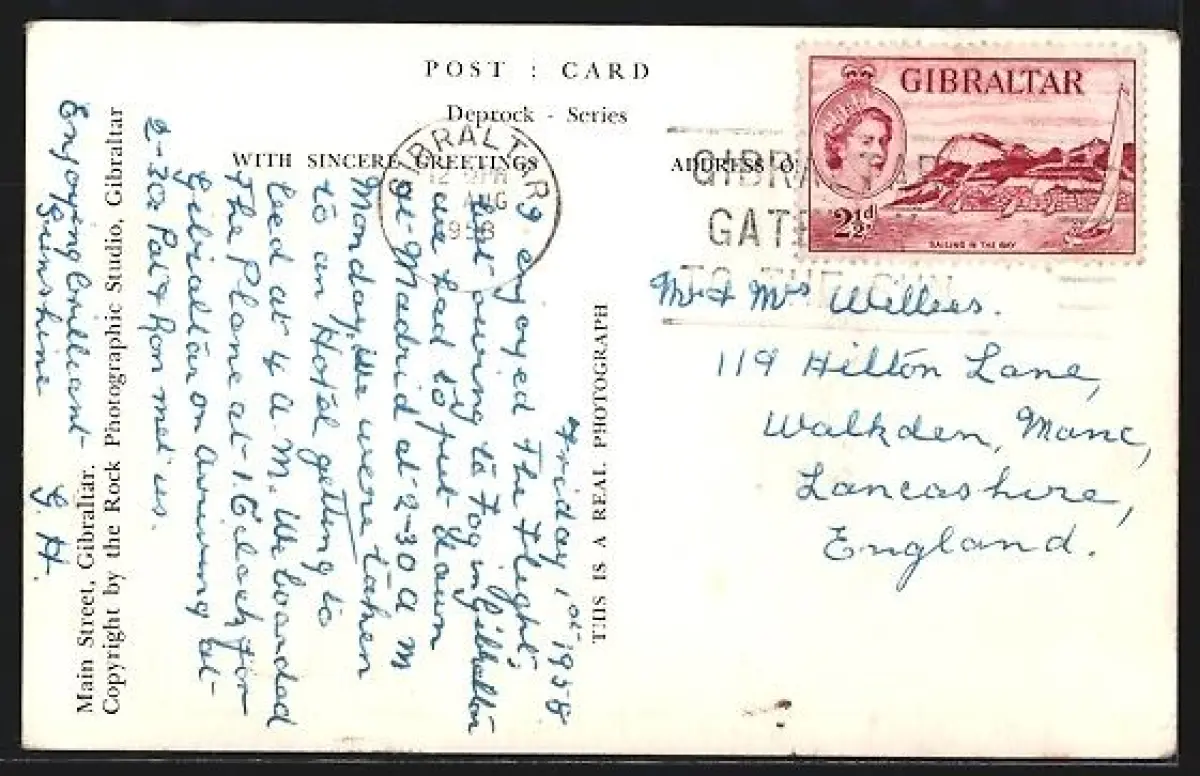 POST : CARD
Deprock - Series
WITH SINCERE GREETINGS
ADDRESS O
GIBRALTAR
12 PM
AUG
1958
GIBRALTAR
GATE
TO THE SUN
GIBRALTAR
2½d
SAILING IN THE BAY
Mr & Mrs Willees.
119 Hilton Lane,
Walkden, Manc,
Lancashire,
England.
THIS IS A REAL PHOTOGRAPH
Friday 1st 1958
I enjoyed The Flight,
but owing to Fog in Gibraltar
we had to put down
at Madrid at 2-30 a m
Monday, We were taken
to an Hotel getting to
bed at 4 a. M. We boarded
The Plane at 1. O'clock for
Gibraltar on Arriving at
2-30 Pat & Ron met us.
Enjoying brilliant
Sunshine G. H.
Main Street, Gibraltar.
Copyright by the Rock Photographic Studio, Gibraltar